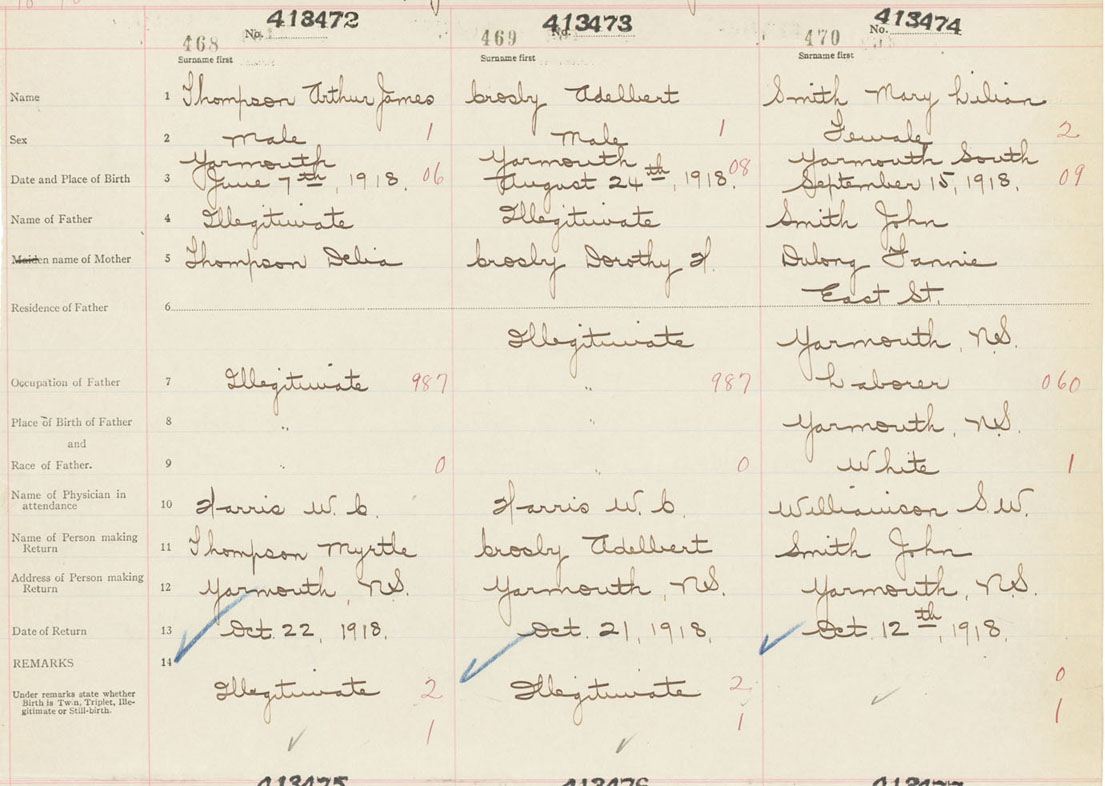 413472 413473 413474
468 No. 469 No. 470 No.
Surname first Surname first Surname first
Name 1 Thompson Arthur James Crosby Adelbert Smith Mary Lilian
Sex 2 Male 1 Male 1 Female 2
Yarmouth Yarmouth Yarmouth South
Date and Place of Birth 3 June 7th, 1918. 06 August 24th, 1918. 08 September 15, 1918. 09
Name of Father 4 Illegitimate Illegitimate Smith John
Maiden name of Mother 5 Thompson Delia Crosby Dorothy H. Dulong Fannie
East St.
Residence of Father 6
Illegitimate Yarmouth, N.S.
Occupation of Father 7 Illegitimate 987 " 987 Laborer 060
Place of Birth of Father 8 " " Yarmouth, N.S.
and
Race of Father. 9 " 0 " 0 White 1
Name of Physician in
attendance 10 Harris W. C. Harris W. C. Williamson S.W.
Name of Person making
Return 11 Thompson Myrtle Crosby Adelbert Smith John
Address of Person making
Return 12 Yarmouth, N.S. Yarmouth, N.S. Yarmouth, N.S.
Date of Return 13 Oct. 22, 1918. Oct. 21, 1918. Oct. 12th, 1918.
REMARKS 14
Under remarks state whether Illegitimate 2 Illegitimate 2 0
Birth is Twin, Triplet, Ille-
gitimate or Still-birth. 1 1 1
413475 413476 413477